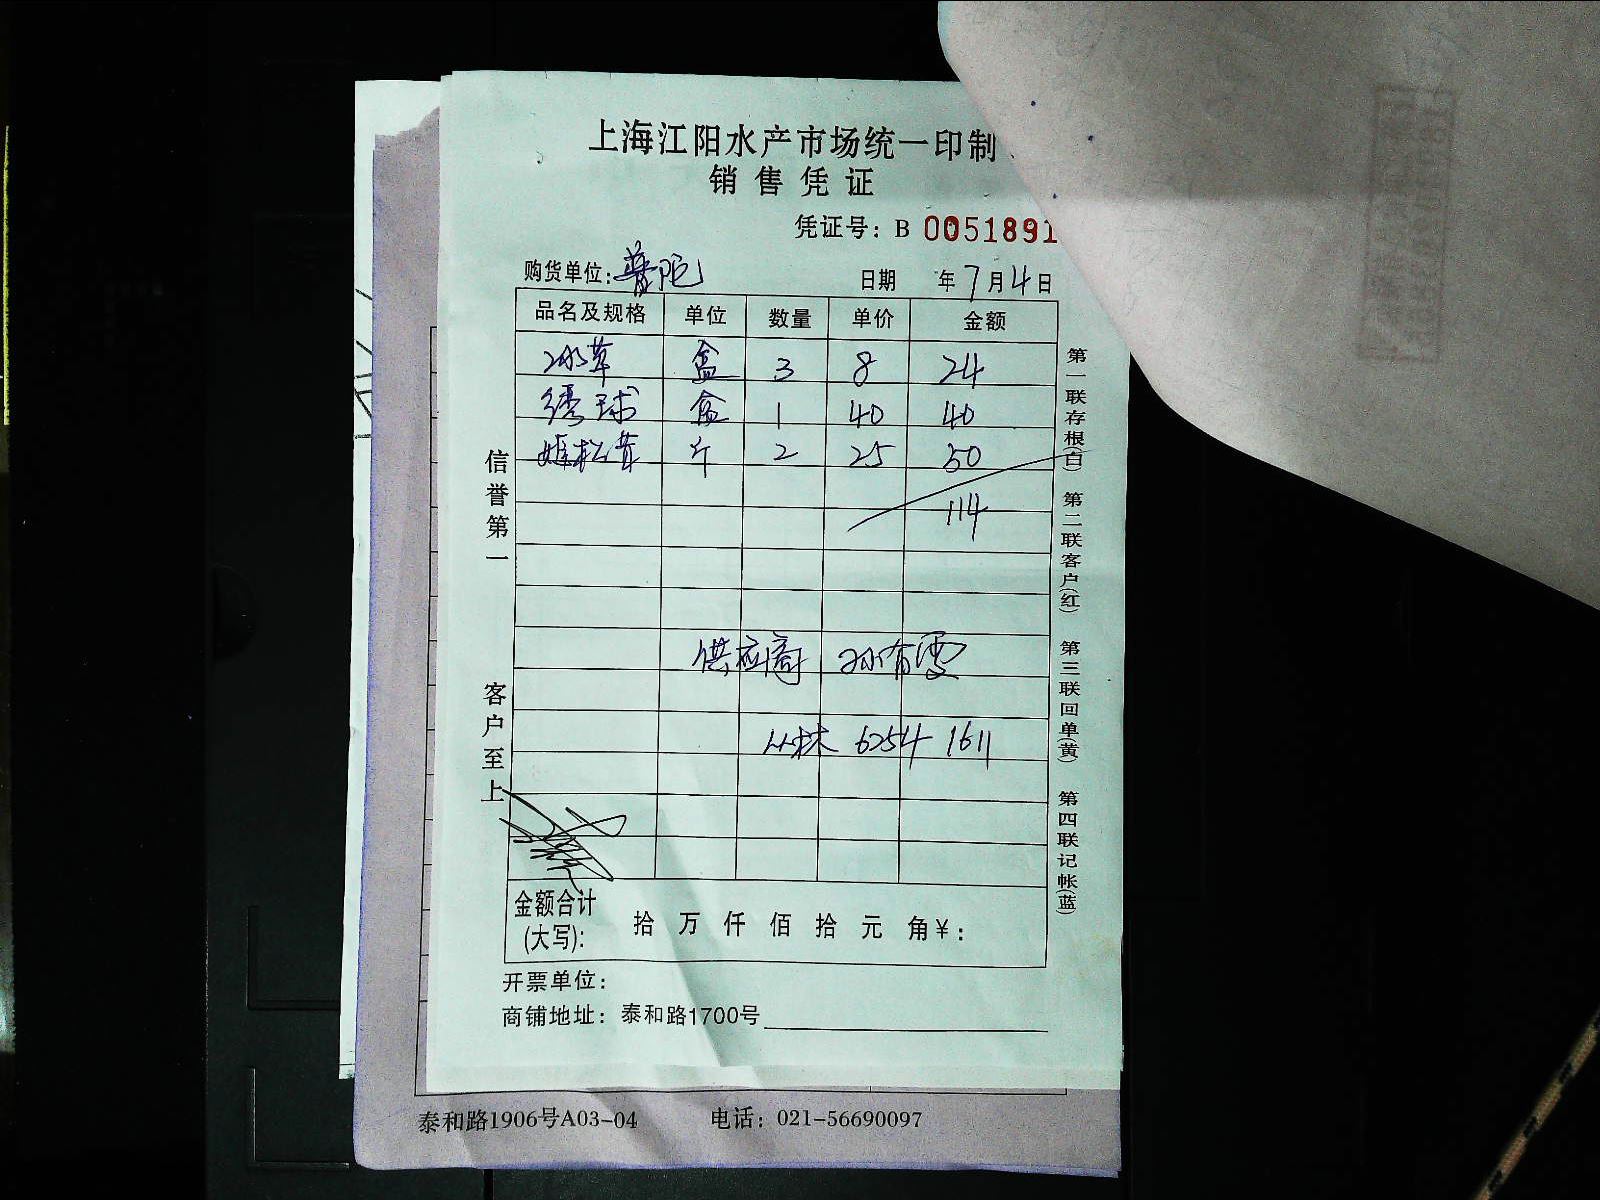 上海江阳水产市场统一印制
销售凭证
凭证号：B 0051891
购货单位：普陀 日期 年7月4日
品名及规格 单位 数量 单价 金额
冰草 盒 3 8 24
绣球 盒 1 40 40
姬松茸 斤 2 25 50
114
供应商 孙有雯
丛林 6254 1611
金额合计(大写): 拾 万 仟 佰 拾 元 角¥:
开票单位：
商铺地址：泰和路1700号
信誉第一 客户至上
第一联存根(白) 第二联客户(红) 第三联回单(黄) 第四联记帐(蓝)
泰和路1906号A03-04 电话：021-56690097